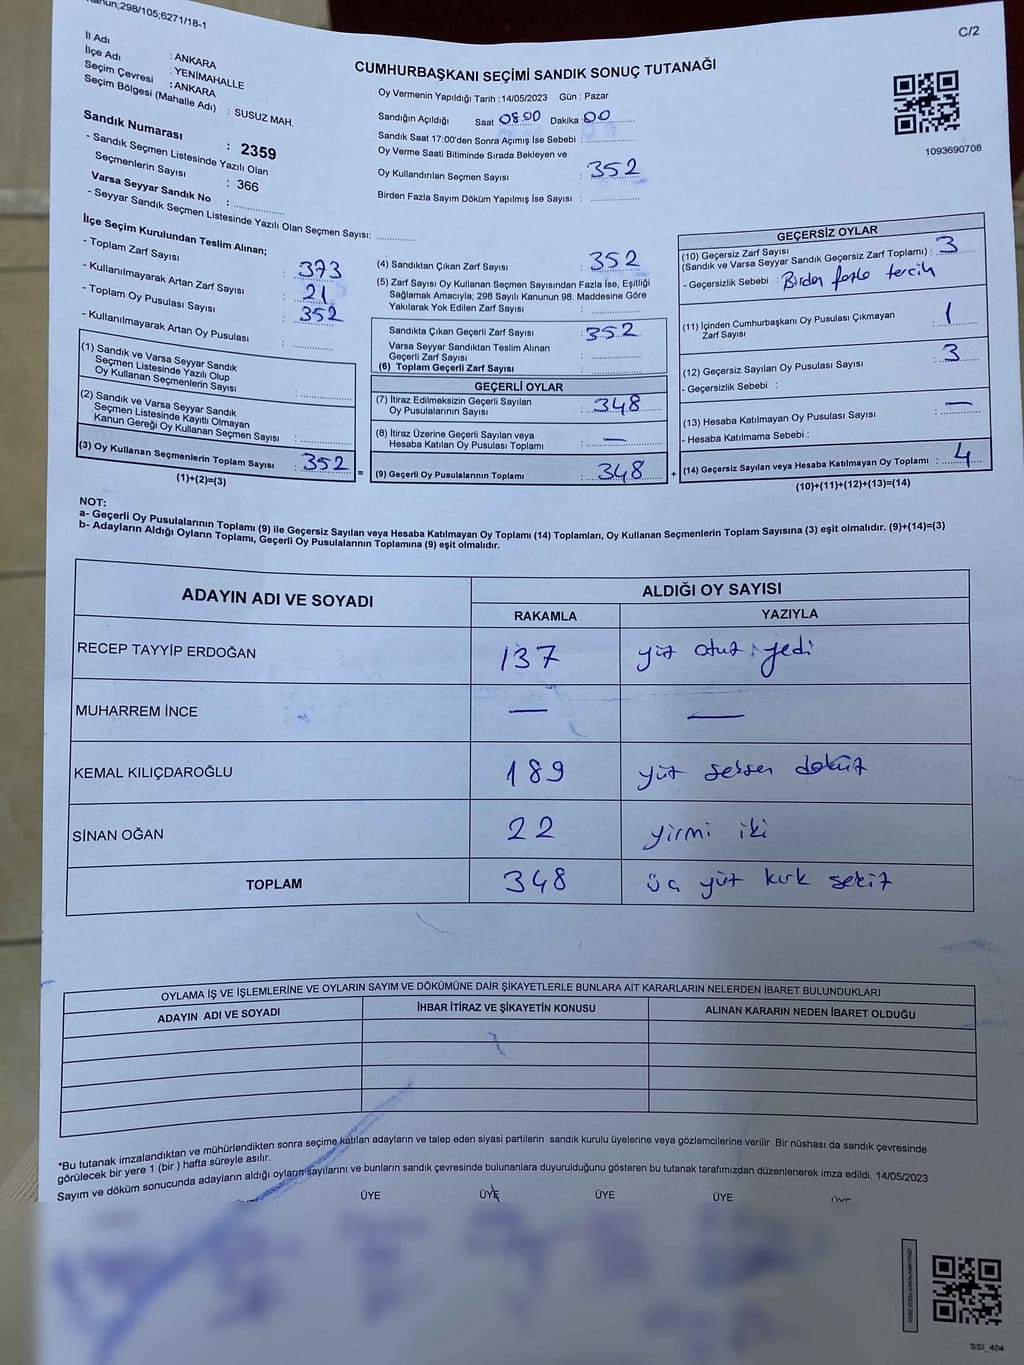 298/105;6271/18-1
C/2
İl Adı : ANKARA
İlçe Adı : YENİMAHALLE
Seçim Çevresi : ANKARA
Seçim Bölgesi (Mahalle Adı) : SUSUZ MAH.
Sandık Numarası : 2359
- Sandık Seçmen Listesinde Yazılı Olan
Seçmenlerin Sayısı : 366
Varsa Seyyar Sandık No :
- Seyyar Sandık Seçmen Listesinde Yazılı Olan Seçmen Sayısı:
CUMHURBAŞKANI SEÇİMİ SANDIK SONUÇ TUTANAĞI
Oy Vermenin Yapıldığı Tarih : 14/05/2023 Gün : Pazar
Sandığın Açıldığı Saat 08.00 Dakika : 00
Sandık Saat 17:00'den Sonra Açımış İse Sebebi :
Oy Verme Saati Bitiminde Sırada Bekleyen ve
Oy Kullandırılan Seçmen Sayısı : 352
Birden Fazla Sayım Döküm Yapılmış İse Sayısı :
1093690708
İlçe Seçim Kurulundan Teslim Alınan;
- Toplam Zarf Sayısı : 373
- Kullanılmayarak Artan Zarf Sayısı : 21
- Toplam Oy Pusulası Sayısı : 352
- Kullanılmayarak Artan Oy Pusulası :
(1) Sandık ve Varsa Seyyar Sandık
Seçmen Listesinde Yazılı Olup
Oy Kullanan Seçmenlerin Sayısı :
(2) Sandık ve Varsa Seyyar Sandık
Seçmen Listesinde Kayıtlı Olmayan
Kanun Gereği Oy Kullanan Seçmen Sayısı :
(3) Oy Kullanan Seçmenlerin Toplam Sayısı : 352 =
(1)+(2)=(3)
(4) Sandıktan Çıkan Zarf Sayısı : 352
(5) Zarf Sayısı Oy Kullanan Seçmen Sayısından Fazla İse, Eşitliği
Sağlamak Amacıyla; 298 Sayılı Kanunun 98. Maddesine Göre
Yakılarak Yok Edilen Zarf Sayısı :
Sandıkta Çıkan Geçerli Zarf Sayısı : 352
Varsa Seyyar Sandıktan Teslim Alınan
Geçerli Zarf Sayısı :
(6) Toplam Geçerli Zarf Sayısı :
GEÇERLİ OYLAR
(7) İtiraz Edilmeksizin Geçerli Sayılan
Oy Pusulalarının Sayısı : 348
(8) İtiraz Üzerine Geçerli Sayılan veya
Hesaba Katılan Oy Pusulası Toplamı : —
(9) Geçerli Oy Pusulalarının Toplamı : 348 +
GEÇERSİZ OYLAR
(10) Geçersiz Zarf Sayısı
(Sandık ve Varsa Seyyar Sandık Geçersiz Zarf Toplamı) : 3
- Geçersizlik Sebebi : Birden fazla tercih
(11) İçinden Cumhurbaşkanı Oy Pusulası Çıkmayan
Zarf Sayısı : 1
(12) Geçersiz Sayılan Oy Pusulası Sayısı : 3
- Geçersizlik Sebebi :
(13) Hesaba Katılmayan Oy Pusulası Sayısı : —
- Hesaba Katılmama Sebebi :
(14) Geçersiz Sayılan veya Hesaba Katılmayan Oy Toplamı : 4
(10)+(11)+(12)+(13)=(14)
NOT:
a- Geçerli Oy Pusulalarının Toplamı (9) ile Geçersiz Sayılan veya Hesaba Katılmayan Oy Toplamı (14) Toplamları, Oy Kullanan Seçmenlerin Toplam Sayısına (3) eşit olmalıdır. (9)+(14)=(3)
b- Adayların Aldığı Oyların Toplamı, Geçerli Oy Pusulalarının Toplamına (9) eşit olmalıdır.
ADAYIN ADI VE SOYADI ALDIĞI OY SAYISI
RAKAMLA YAZIYLA
RECEP TAYYİP ERDOĞAN 137 yüz otuz yedi
MUHARREM İNCE — —
KEMAL KILIÇDAROĞLU 189 yüz seksen dokuz
SİNAN OĞAN 22 yirmi iki
TOPLAM 348 üç yüz kırk sekiz
OYLAMA İŞ VE İŞLEMLERİNE VE OYLARIN SAYIM VE DÖKÜMÜNE DAİR ŞİKAYETLERLE BUNLARA AİT KARARLARIN NELERDEN İBARET BULUNDUKLARI
ADAYIN ADI VE SOYADI İHBAR İTİRAZ VE ŞİKAYETİN KONUSU ALINAN KARARIN NEDEN İBARET OLDUĞU
*Bu tutanak imzalandıktan ve mühürlendikten sonra seçime katılan adayların ve talep eden siyasi partilerin sandık kurulu üyelerine veya gözlemcilerine verilir .Bir nüshası da sandık çevresinde
görülecek bir yere 1 (bir ) hafta süreyle asılır.
Sayım ve döküm sonucunda adayların aldığı oyların sayılarını ve bunların sandık çevresinde bulunanlara duyurulduğunu gösteren bu tutanak tarafımızdan düzenlenerek imza edildi. 14/05/2023
ÜYE ÜYE ÜYE ÜYE ÜYE
SSI_404